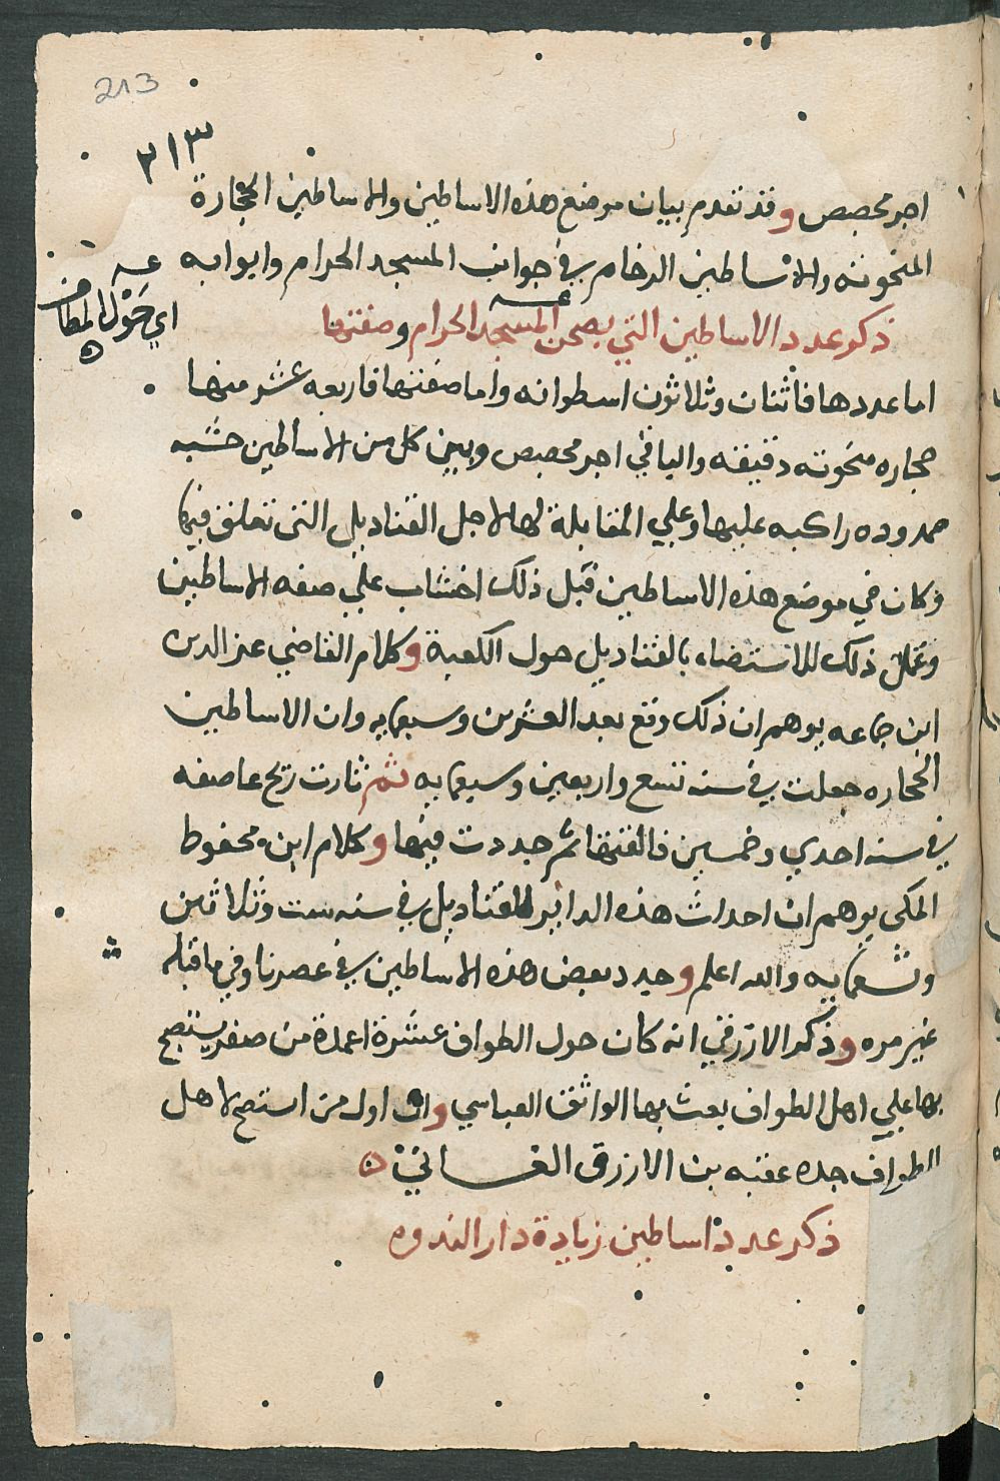 213
٢١٣
اجر مجصص وقد تقدم بيان موضع هذه الاساطين والاساطين الحجارة
المنحوته والاساطين الرخام في جوانب المسجد الحرام وابوابه
ذكر عدد الاساطين التي بصحن المسجد الحرام وصفتها
اي حَوْل المطاف
اما عددها فاثنان وثلاثون اسطوانه واما صفتها فاربعه عشر منها
حجاره منحوته دقيقه والباقي اجر مجصص وبين كل من الاساطين خشبه
ممدوده راكبه عليها وعلي المقابلة لها لاجل القناديل التي تعلق فيها
وكان في موضع هذه الاساطين قبل ذلك اخشاب علي صفه الاساطين
وعمل ذلك للاستضاء بالقناديل حول الكعبة وكلام القاضي عز الدين
ابن جماعه يوهم ان ذلك وقع بعد العشرين وسبعمايه وان الاساطين
الحجاره جعلت في سنه تسع واربعين وسبعمايه ثم ثارت ريح عاصفه
في سنه احدي وخمسين فالقتها ثم جددت فيها وكلام ابن محفوظ
المكي يوهم ان احداث هذه الداير للقناديل في سنه ست وثلاثين
وسبعمايه والله اعلم وجدد بعض هذه الاساطين في عصرنا وفي ما قبله
غير مره وذكر الازرقي انه كان حول الطواف عشرة اعمدة من صفر يستصبح
بها علي اهل الطواف بعث بها الواثق العباسي وان اول من استصبح لاهل
الطواف جده عقبه بن الازرق الغساني ه
ذكر عدد اساطين زيادة دار الندوه